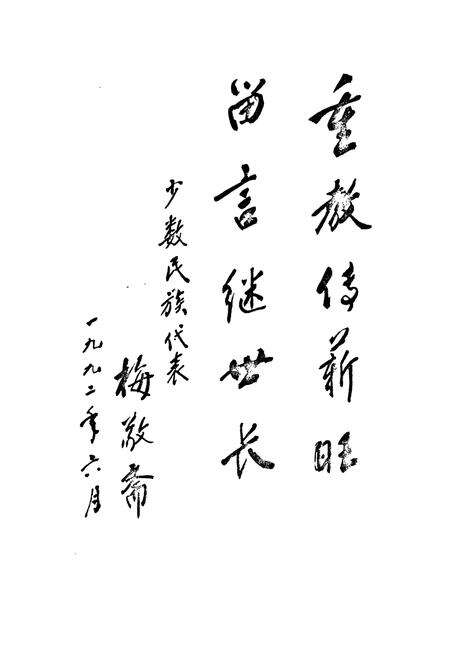 重教传薪旺
留言继世长
少数民族代表
梅敬斋
一九九二年六月